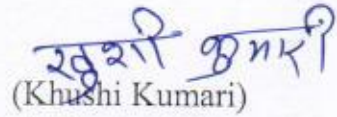 खुशी कुमारी
(Khushi Kumari)